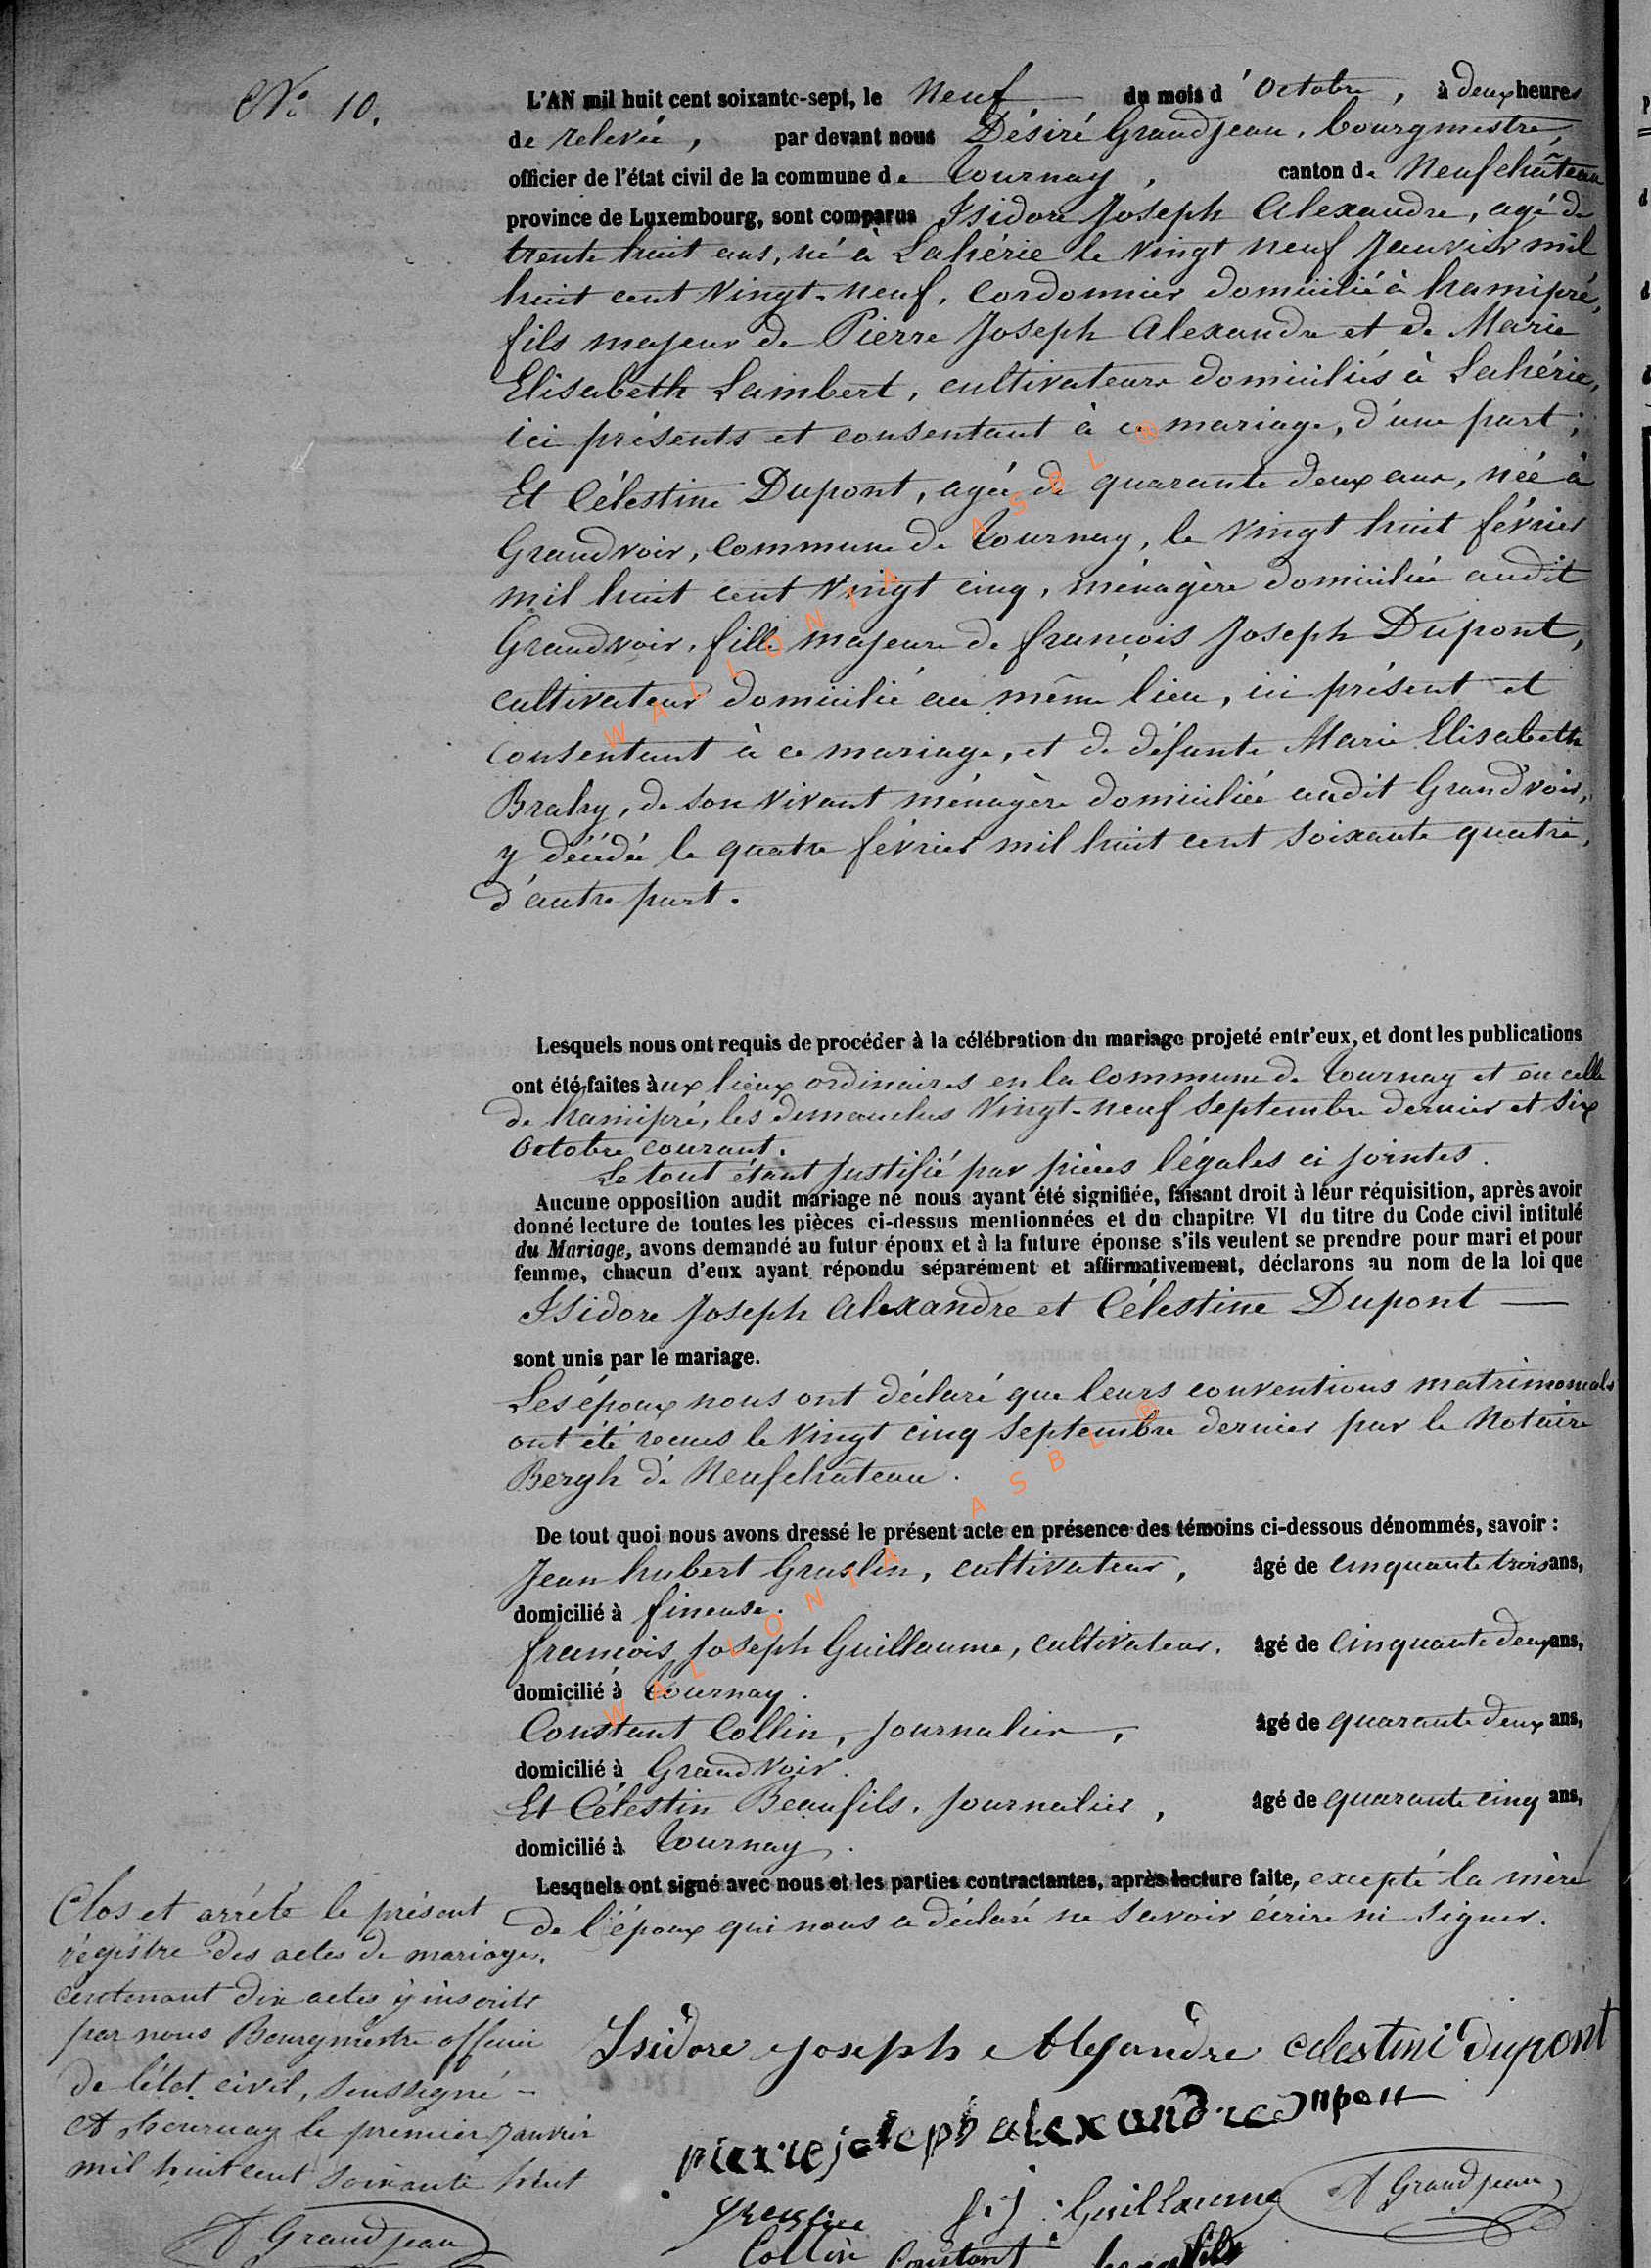 N° 10.
L'AN mil huit cent soixante-sept, le Neuf du mois d'Octobre, à deux heures
de relevée, par devant nous Désiré Grandjean, bourgmestre,
officier de l'état civil de la commune de Tournay, canton de Neufchâteau
province de Luxembourg, sont comparus Isidore Joseph Alexandre, agé de
trente huit ans, né à Lahérie le vingt neuf Janvier mil
huit cent vingt-neuf, Cordonnier domicilié à hamipré,
fils majeur de Pierre Joseph Alexandre et de Marie
Elisabeth Lambert, cultivateurs domiciliés à Lahérie,
ici présents et consentant à ce mariage, d'une part;
Et Célestine Dupont, agée de quarante deux ans, née à
Grandvoir, commune de Tournay, le vingt huit février
mil huit cent vingt cinq, ménagère domiciliée audit
Grandvoir, fille majeure de françois Joseph Dupont,
cultivateur domicilié au même lieu, ici présent et
consentant à ce mariage, et de défunte Marie Elisabeth
Brahy, de son vivant ménagère domiciliée audit Grandvoir,
y décédée le quatre février mil huit cent soixante quatre,
d'autre part.
Lesquels nous ont requis de procéder à la célébration du mariage projeté entr'eux, et dont les publications
ont été faites aux lieux ordinaires en la commune de Tournay et en celle
de hamipré, les dimanches vingt-neuf Septembre dernier et six
Octobre courant.
Le tout étant justifié par pièces légales ci jointes.
Aucune opposition audit mariage ne nous ayant été signifiée, faisant droit à leur réquisition, après avoir
donné lecture de toutes les pièces ci-dessus mentionnées et du chapitre VI du titre du Code civil intitulé
du Mariage, avons demandé au futur époux et à la future épouse s'ils veulent se prendre pour mari et pour
femme, chacun d'eux ayant répondu séparément et affirmativement, déclarons au nom de la loi que
Isidore Joseph Alexandre et Célestine Dupont —
sont unis par le mariage.
Les époux nous ont déclaré que leurs conventions matrimoniales
ont été reçues le vingt cinq Septembre dernier par le Notaire
Bergh de Neufchâteau.
De tout quoi nous avons dressé le présent acte en présence des témoins ci-dessous dénommés, savoir :
Jean hubert Gruslin, cultivateur, âgé de cinquante trois ans,
domicilié à fineuse.
françois Joseph Guillaume, cultivateur, âgé de cinquante deux ans,
domicilié à Tournay.
Constant Collin, Journalier, âgé de quarante deux ans,
domicilié à Grandvoir.
Et Célestin Beaufils, Journalier, âgé de quarante cinq ans,
domicilié à Tournay.
Lesquels ont signé avec nous et les parties contractantes, après lecture faite, excepté la mère
de l'époux qui nous a déclaré ne savoir écrire ni signer.
Clos et arrêté le présent
régistre des actes de mariages,
contenant dix actes y inscrits
par nous Bourgmestre officier
de l'état civil, soussigné -
A Tournay le premier Janvier
mil huit cent soixante huit
D Grandjean
Isidore joseph Alexandre celestine dupont
pierre joseph alexandre dupont
Gruslin f. j. Guillaume D Grandjean
Collin Constant beaufils
WALLONIA ASBL ®
WALLONIA ASBL ®